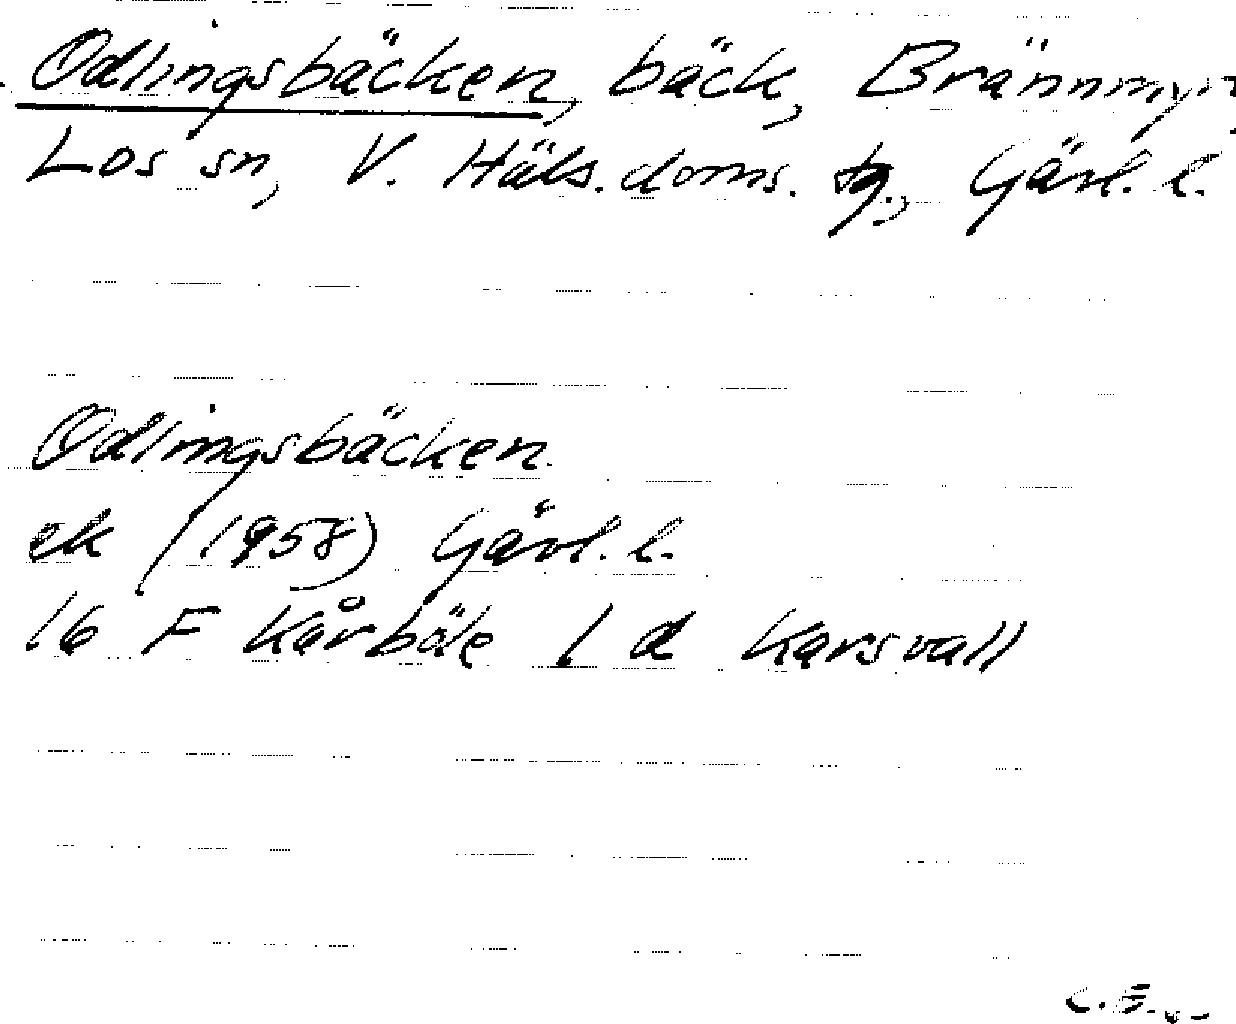 Odlingsbäcken, bäck, Brännmyr
Los sn, V. Häls. doms. tg., Gävl. l.
Odlingsbäcken
ek (1958) Gävl. l.
16 F Kårböle 1 d Karsvall